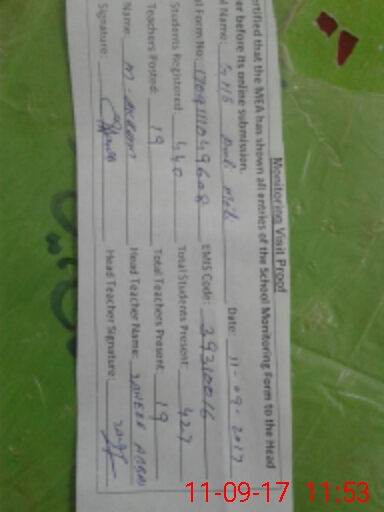 Monitoring Visit Proof
ertified that the MEA has shown all entries of the School Monitoring Form to the Head
er before its online submission.
l Name: GHS Date: 11-09-2017
l Form No: 170911049608 EMIS Code: 39310016
Students Registered 440 Total Students Present: 427
Teachers Posted: 19 Total Teachers Present: 19
Name: M. AKRAM Head Teacher Name:
Signature: Head Teacher Signature:
11-09-17 11:53